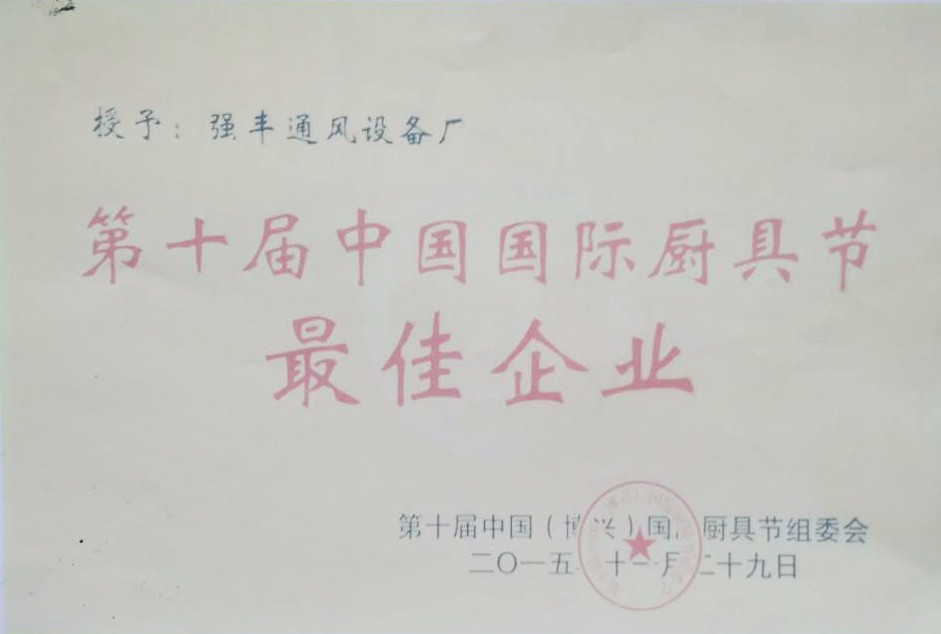 授予：强丰通风设备厂
第十届中国国际厨具节
最佳企业
第十届中国（博兴）国际厨具节组委会
二〇一五年十一月二十九日